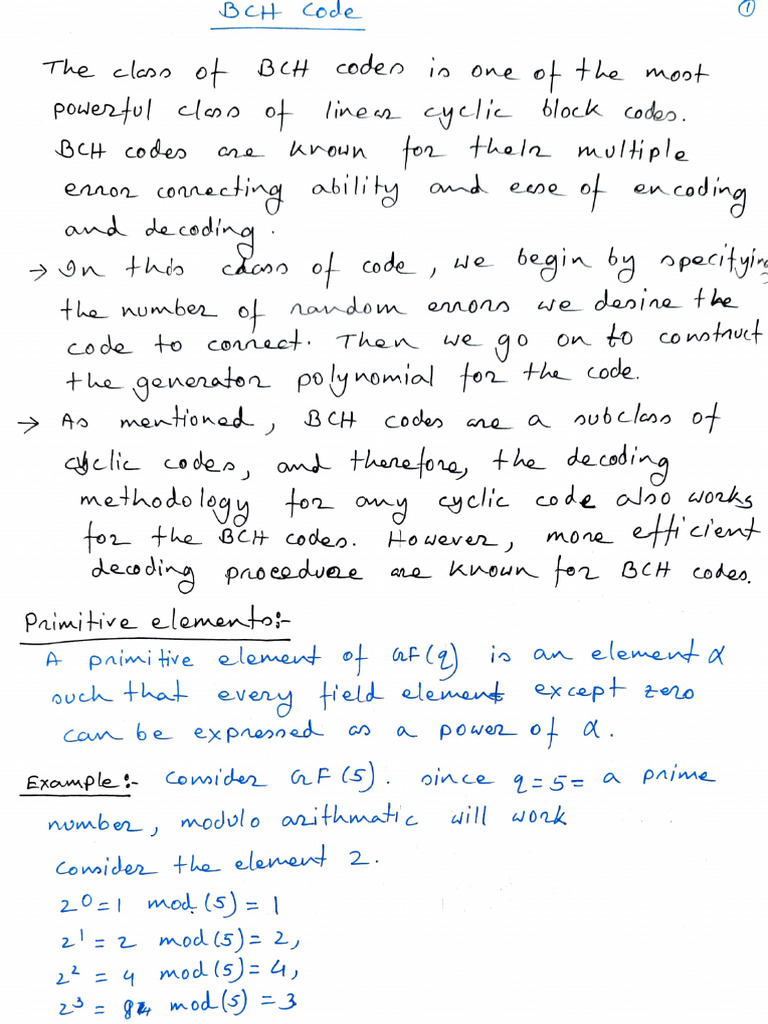 BCH Code
①
The class of BCH codes is one of the most
powerful class of linear cyclic block codes.
BCH codes are known for their multiple
error correcting ability and ease of encoding
and decoding.
→ In this class of code, we begin by specifying
the number of random errors we desire the
code to correct. Then we go on to construct
the generator polynomial for the code.
→ As mentioned, BCH codes are a subclass of
cyclic codes, and therefore, the decoding
methodology for any cyclic code also works
for the BCH codes. However, more efficient
decoding procedure are known for BCH codes.
Primitive elements:-
A primitive element of GF(q) is an element α
such that every field element except zero
can be expressed as a power of α.
Example:- Consider GF(5). since q=5= a prime
number, modulo arithmatic will work
Consider the element 2.
2⁰=1 mod(5)=1
2¹ = 2 mod(5)= 2,
2² = 4 mod(5)= 4,
2³ = 8 mod(5) = 3